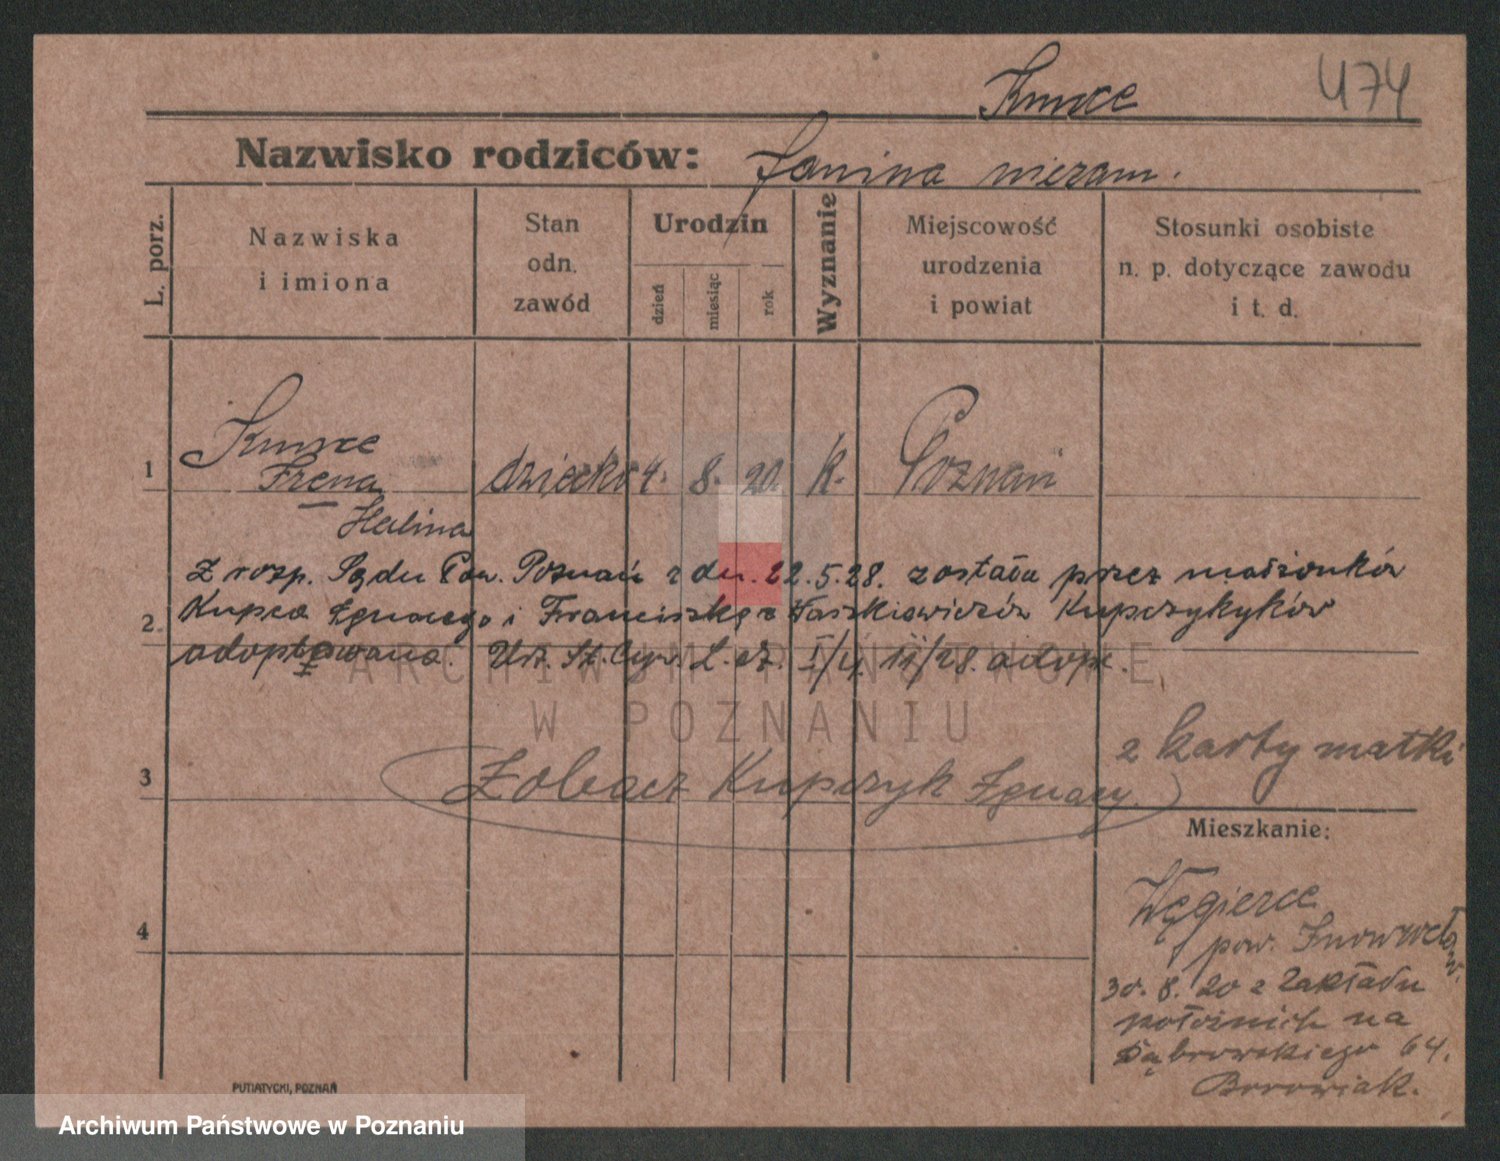 474
Kmrce
Nazwisko rodziców: Janina niezam.
L. porz.
Nazwiska
i imiona
Stan
odn.
zawód
Urodzin
dzień
miesiąc
rok
Wyznanie
Miejscowość
urodzenia
i powiat
Stosunki osobiste
n. p. dotyczące zawodu
i t. d.
Kmrce
1 Irena dziecko 4. 8. 20. K. Poznań
Halina
Z rozp. Sądu Pow. Poznań z dn. 22.5.28. została przez małżonków
2. Kupca Ignacego i Franciszkę z Kupczyków
adoptowana. Urz. St. Cyw. L. dz. I/4. 11/28. adopt.
ARCHIWUM PAŃSTWOWE
W POZNANIU
z karty matki
3 Zobacz Kupczyk Ignacy.
Mieszkanie:
Węgierce
pow. Inowrocław.
4
30. 8. 20 z Zakładu
położnich na
Dąbrowskiego 64.
Borowiak.
PUTIATYCKI, POZNAŃ
Archiwum Państwowe w Poznaniu